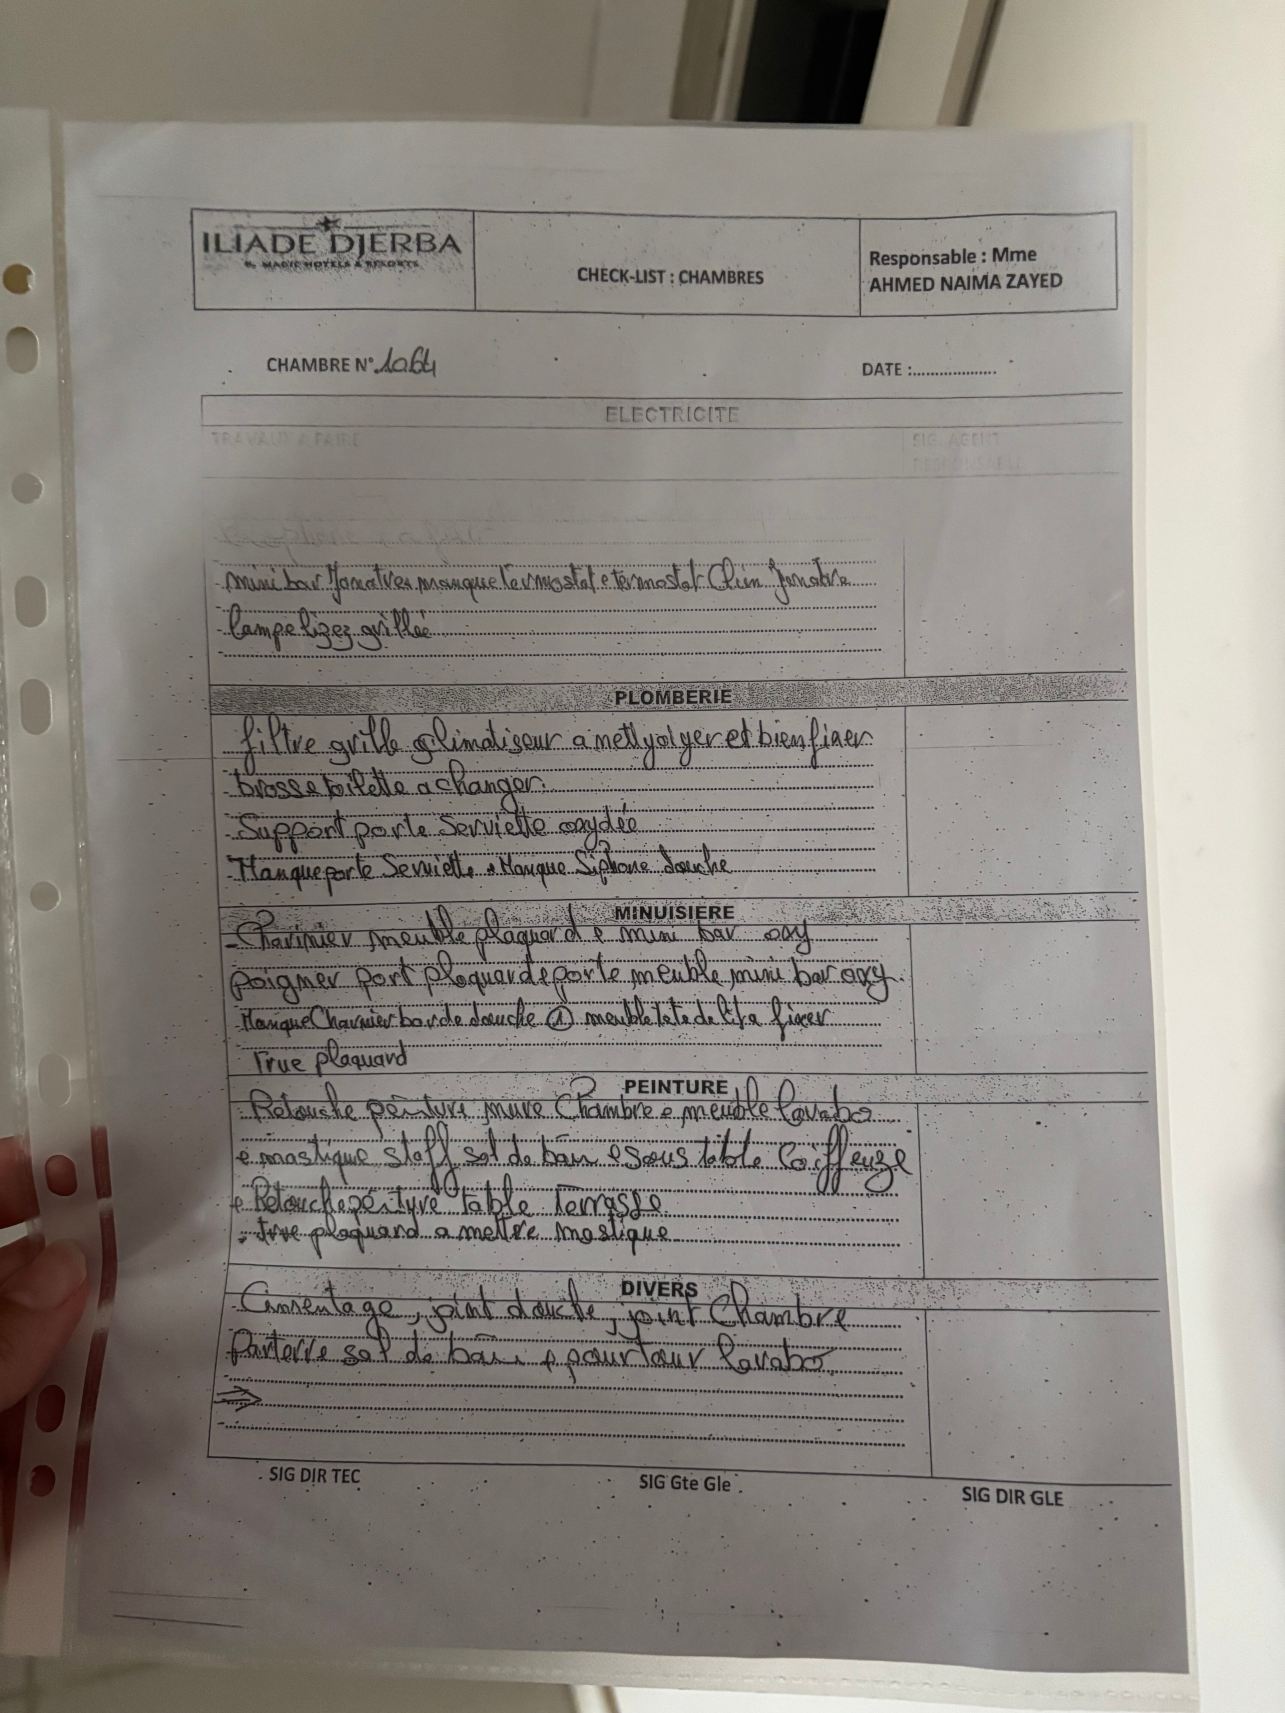 ILIADE DJERBA
By MAGIC HOTELS & RESORTS
CHECK-LIST : CHAMBRES
Responsable : Mme
AHMED NAIMA ZAYED
CHAMBRE N° 1064
DATE :...................
ELECTRICITE
TRAVAUX A FAIRE
SIG. AGENT
RESPONSABLE
mini bar manque termostat e termostat
lampe lizez grillée
PLOMBERIE
filtre grille climatiseur a mettyolyer et bien fixer
brosse toilette a changer
Support porte Serviette oxydée
Manque porte Serviette. Manque Siphone douche
MINUISIERE
- Charinier meuble plaquard e mini bar oxy
poigner port plaquard e porte meuble mini bar oxy
Manque Charnier bar de douche ① meuble tete de lit a fixer
True plaquard
PEINTURE
Retouche peinture mure Chambre e meuble lavabo
e mastique staff sal de bain e sous table Coiffeuze
e Retouche peinture table Terrasse
. true plaquard a mettre mastique
DIVERS
Cimentage, joint douche, joint Chambre
Parterre sal de bain e pourtour lavabo
⇒
SIG DIR TEC
SIG Gte Gle
SIG DIR GLE